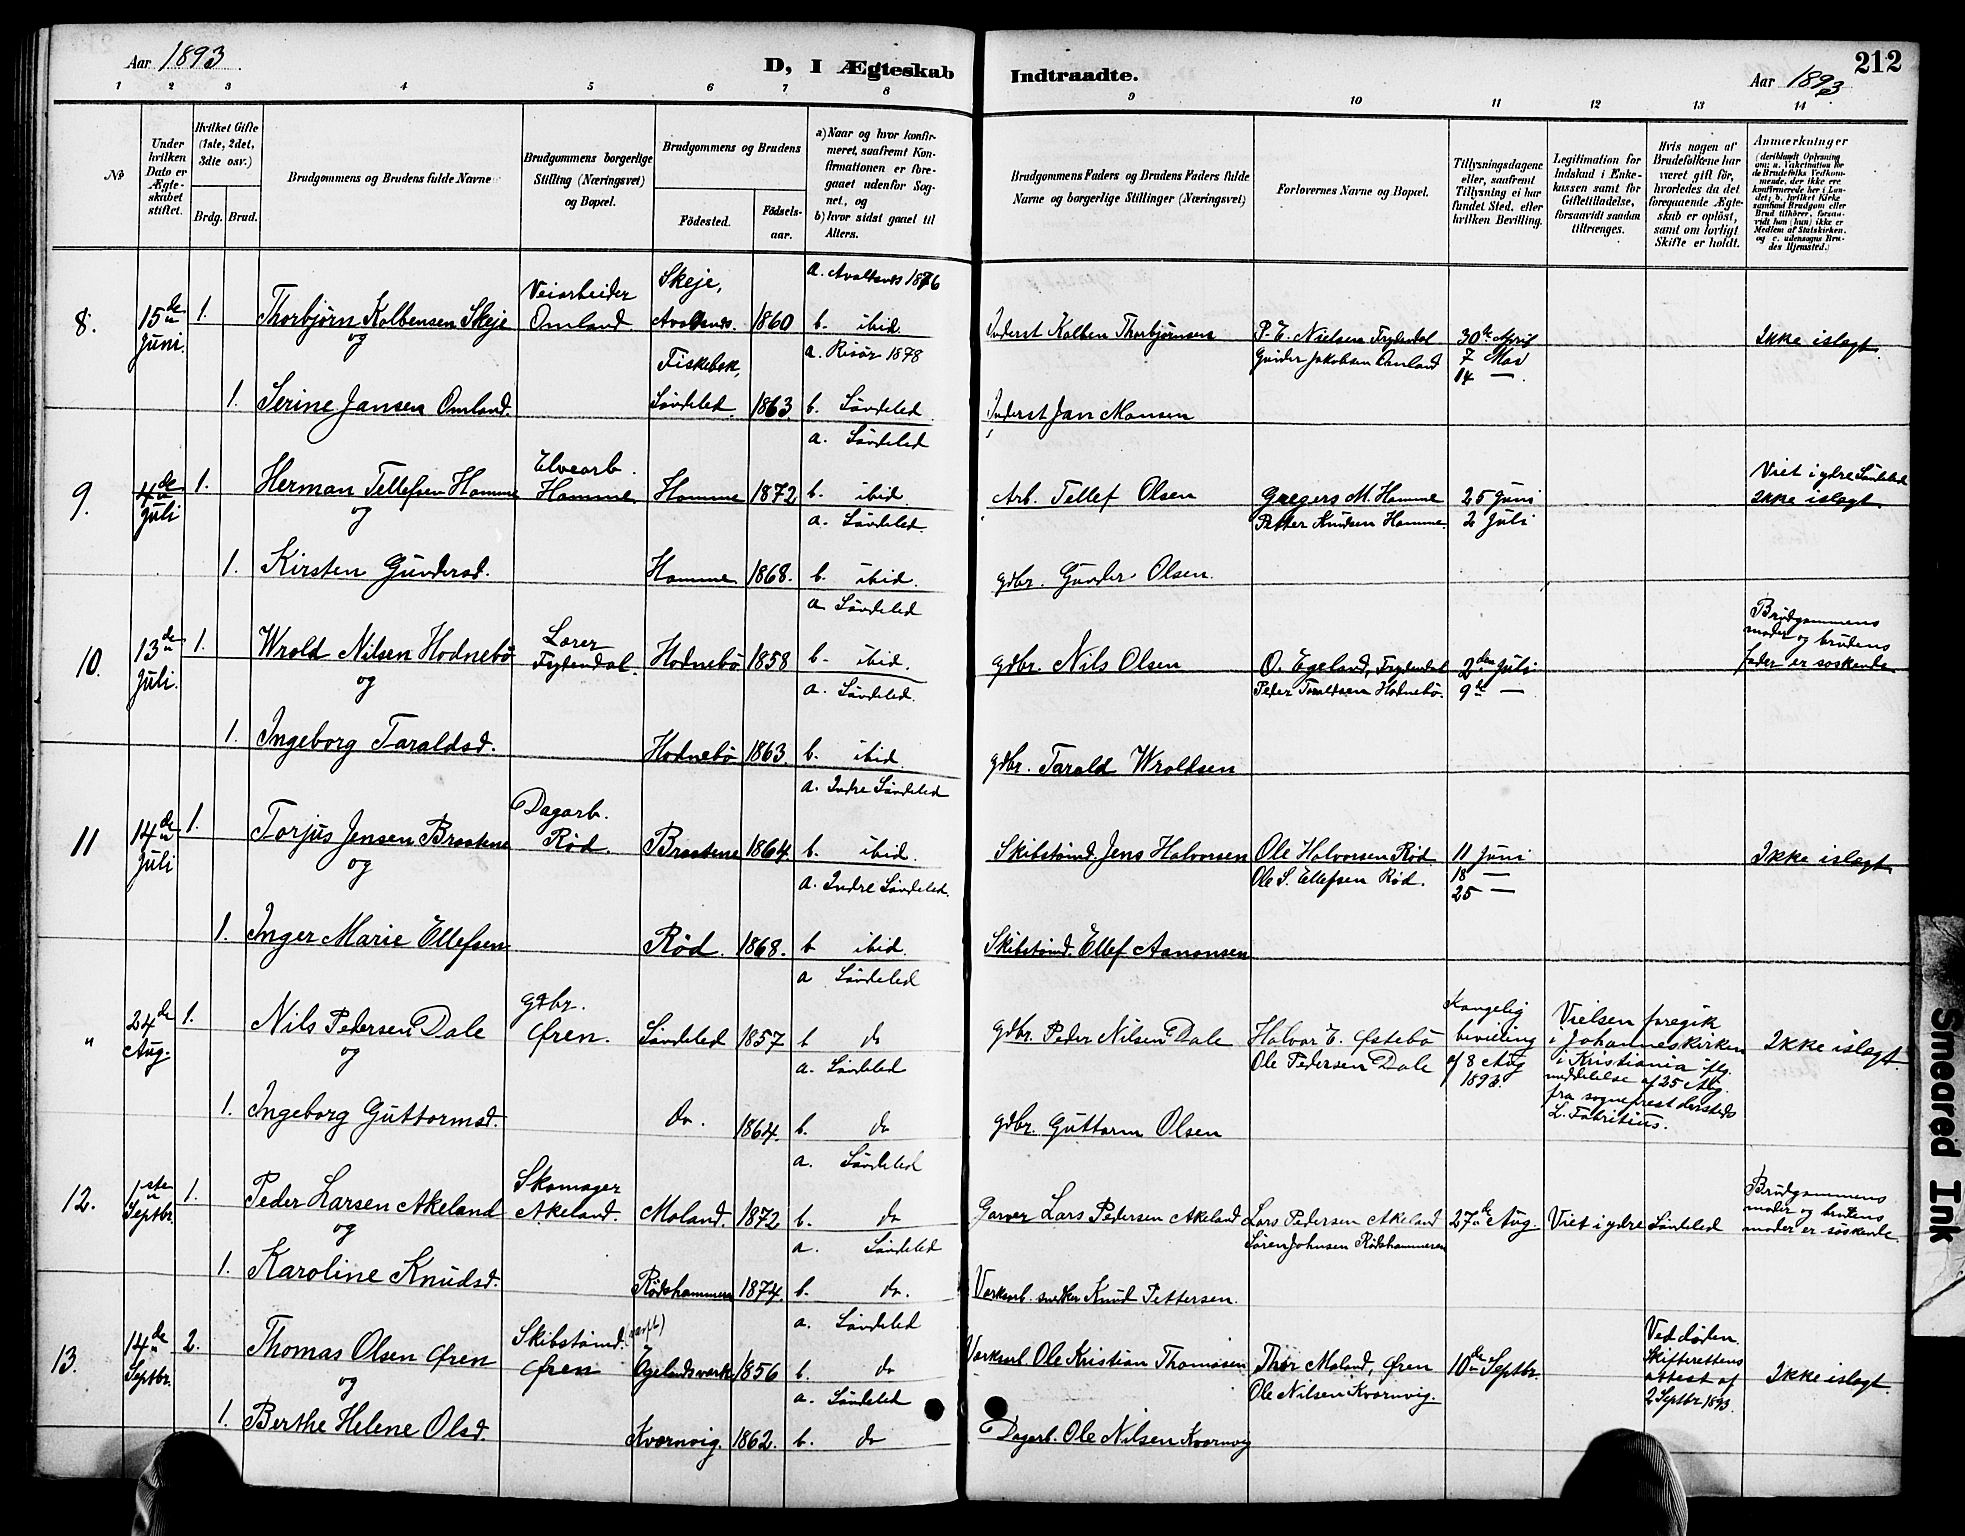 Aar 1893.
D, I Ægteskab
Indtraadte.
Aar 1893
212
1 2 3 4 5 6 7 8 9 10 11 12 13 14
No
Under hvilken Dato er Ægteskabet stiftet.
Hvilket Gifte (1ste, 2det, 3die osv.)
Brdg. Brud.
Brudgommens og Brudens fulde Navne
Brudgommens borgerlige Stilling (Næringsvei) og Bopæl.
Brudgommens og Brudens
Fødested.
Fødselsaar.
a) Naar og hvor konfirmeret, saafremt Konfirmationen er foregaaet udenfor Sognet, og
b) hvor sidst gaaet til Alters.
Brudgommens Faders og Brudens Faders fulde Navne og borgerlige Stillinger (Næringsvei)
Forlovernes Navne og Bopæl.
Tillysningsdagene eller, saafremt Tillysning ei har fundet Sted, efter hvilken Bevilling.
Legitimation for Indskud i Enkekassen samt for Giftetilladelse, forsaavidt saadan tiltrænges.
Hvis nogen af Brudefolkene har været gift før, hvorledes da det foregaaende Ægteskab er opløst, samt om lovligt Skifte er holdt.
Anmærkninger
(deriblandt Oplysning om: a. Vakcination for de Brudefolks Vedkommende, der ikke ere konfirmerede her i Landet; b. hvilket Kirkesamfund Brudgom eller Brud tilhører, forsaavidt han (hun) ikke er Medlem af Statskirken, og c. udensogns Brudes Hjemsted.)
8. 15de Juni. 1. Thorbjørn Kolbensen Skeje Veiarbeider Omland Skeje, Avaldsnes. 1860 a. Avaldsnes 1876 b. ibid.
Inderst Kolben Thorbjørnsen P. E. Nielsen Frydendal Gunder Jakobsen Omland 30te April 7 Mai 14 — Ikke i slægt.
og
1. Serine Jansen Omland. Fiskebek, Søndeled. 1863 a. Risør 1878 b. Søndeled
Inderst Jan Monsen
9. 4de Juli 1. Herman Tellefsen Hamme Elvearb. Hamme Hamme 1872 a. Søndeled b. ibid.
Arb. Tellef Olsen Gregers M. Hamme Petter Knudsen Hamme. 25 Juni 2 Juli Viet i ydre Søndeled Ikke i slægt.
og
1. Kirsten Gundersd. Hamme 1868. a. Søndeled. b. ibid.
gdbr. Gunder Olsen.
10. 13de Juli. 1. Wrold Nilsen Hodnebø Lærer Frydendal. Hodnebø 1858 a. Søndeled b. ibid.
gdbr. Nils Olsen O. Egeland, Frydendal Peder Taraldsen Hodnebø. 2den Juli 9de — Brudgommens moder og brudens fader er søskende
og
1. Ingeborg Taraldsd. Hodnebø 1863. a. Søndeled. b. ibid
gdbr. Tarald Wroldsen
11 14de Juli 1. Torjus Jensen Braatene Dagarb. Rød. Braatene 1864. a. Indre Søndeled b. ibid.
Skibstømd. Jens Halvorsen Ole Halvorsen Rød. Ole S. Ellefsen Rød. 11 Juni 18 — 25 — Ikke i slægt.
og
1. Inger Marie Ellefsen Rød. 1868. a. Indre Søndeled. b ibid.
Skibstømd. Ellef Aanonsen
" 24de Aug. 1. Nils Pedersen Dale gdbr. Øren. Søndeled 1857 a Søndeled b do
gdbr. Peder Nilsen Dale Halvor E. Østebø Ole Pedersen Dale Kongelig bevilling af 8 Aug 1893. Vielsen foregik i Johanneskirken i Kristiania iflg. meddelelse af 25 Aug. fra sogneprest dersteds L. Fabritius. Ikke i slægt.
og
1. Ingeborg Guttormsd. do. 1864. a. Søndeled b. do
gdbr. Guttorm Olsen
12. 1ste Septbr. 1. Peder Larsen Akeland Skomager Akeland. Moland. 1872 a. Søndeled b. do
Garver Lars Pedersen Akeland Lars Pedersen Akeland Søren Johnsen Rødshammeren 27de Aug. Viet i ydre Søndeled Brudgommens moder og brudens moder er søskende.
og
1. Karoline Knudsd. Rødshammeren 1874. a. Søndeled b. do.
Værksarb. snekker Knud Pettersen.
13. 14de Septbr. 2. Thomas Olsen Øren Skibstømd. Øren Egelandsværk 1856 a. Søndeled b. do
Ole Kristian Thomasen Thor Moland, Øren Ole Nilsen Kvarnvig. 10de Septbr. Ved døden. Skifterettens attest af 2 Septbr 1893. Ikke i slægt.
og
1. Berthe Helene Olsd. Kvarnvig. 1862. a. Søndeled b. do
Dagarb. Ole Nilsen Kvarnvig
Smeared Ink